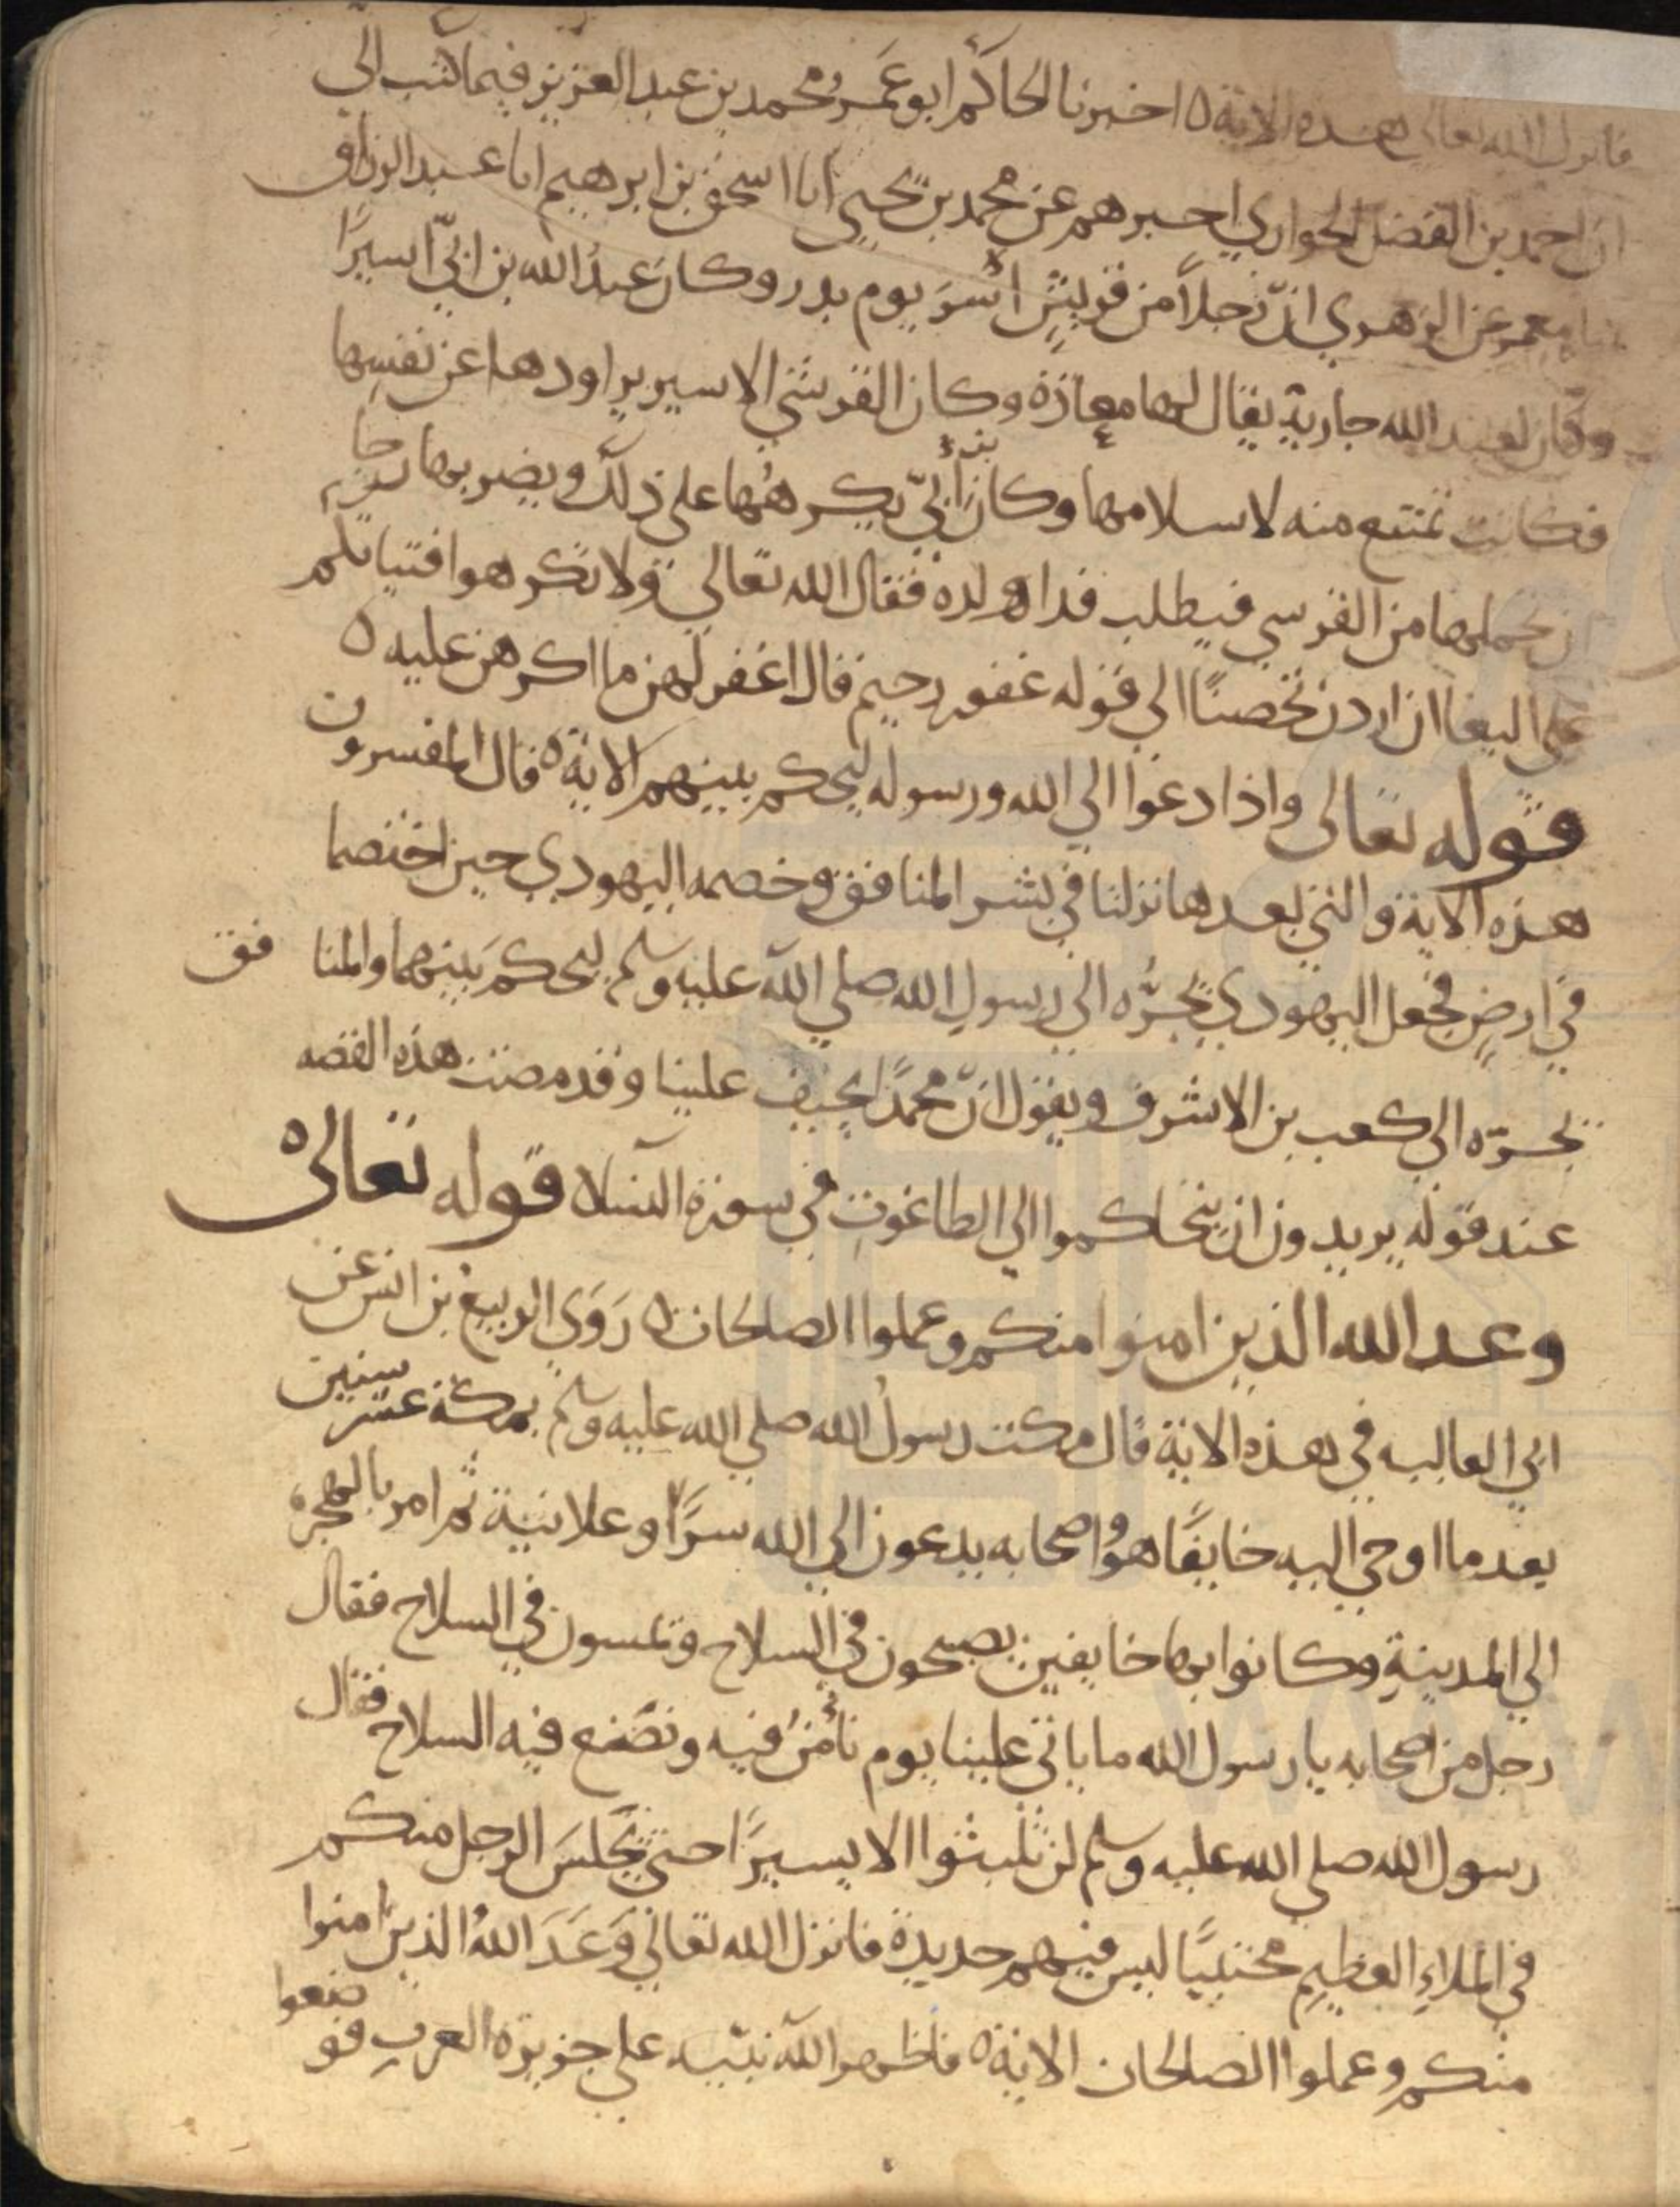 فانزل الله تعالى هذه الاية ٥ اخبرنا الحاكم ابو عَمرو محمد بن عبد العزيز فيما كتب الي
ان احمد بن الفضل الحواري اخبرهم عن محمد بن يحيى انا اسحق بن ابرهيم انا عبد الرزاق
انا معمر عن الزهري انّ رجلاً من قريشٍ اُسرَ يوم بدر وكان عبدُ الله بن ابيّ اسيرًا
وكان لعبد الله جارية يقال لها معاذة وكان القرشي الاسير يراودها عن نفسِها
فكانت تمتنع منه لاسلامها وكانَ ابن أبيّ يكرهُها على ذلك ويضربها رجا
ان تحملها من القرسي فيطلب فدا ولده فقال الله تعالى ولا تكرهوا فتياتكم
على البغا ان اردن تحصنًا الى قوله غفور رحيم قال اغفر لهن ما اكرهن عليه ٥
قوله تعالى واذا دعوا الي الله ورسوله ليحكم بينهم الاية ٥ قال المفسرون
هذه الاية والتي بعدها نزلتا في بشر المنافق وخصمه اليهودي حين اختصما
في ارضٍ فجعل اليهودي يجرُّه الى رسولِ الله صلي الله عليه وسلم ليحكمَ بينهما والمنافق
يجرّه الي كعب بن الاشرف ويقول انّ محمدًا يحيف علينا وقد مضت هذه القصه
عند قوله يريدون ان يتحاكموا الي الطاغوتِ في سورة النسا قوله تعالى ٥
وعد الله الذين امنوا منكم وعملوا الصالحات ٥ رَوَى الربيعُ بن انس عن
ابي العاليه في هذه الاية قال مكث رسولُ الله صلي الله عليه وسلم بمكة عشر سنين
بعد ما اوحي اليه خايفًا هوُ واصحابه يدعون الي الله سرًّا وعلانية ثم امر بالهجرة
الي المدينةِ وكانوا بها خايفين يصبحون في السلاح وتمسون في السلاح فقال
رجل من اصحابه يا رسول الله ما ياتي علينا يوم نأمنُ فيه ونضع فيه السلاح فقال
رسول الله صلى الله عليه وسلم لن تلبثوا الا يسيرًا حتى يجلسَ الرجل منكم
في الملاءِ العظيمِ محتبيًا ليس فيهم حديدة فانزل الله تعالى وَعَدَ اللهُ الذين امنوا
منكم وعملوا الصالحات الاية ٥ فاظهر الله نبيّه علي جزيرة العربِ فوضعوا